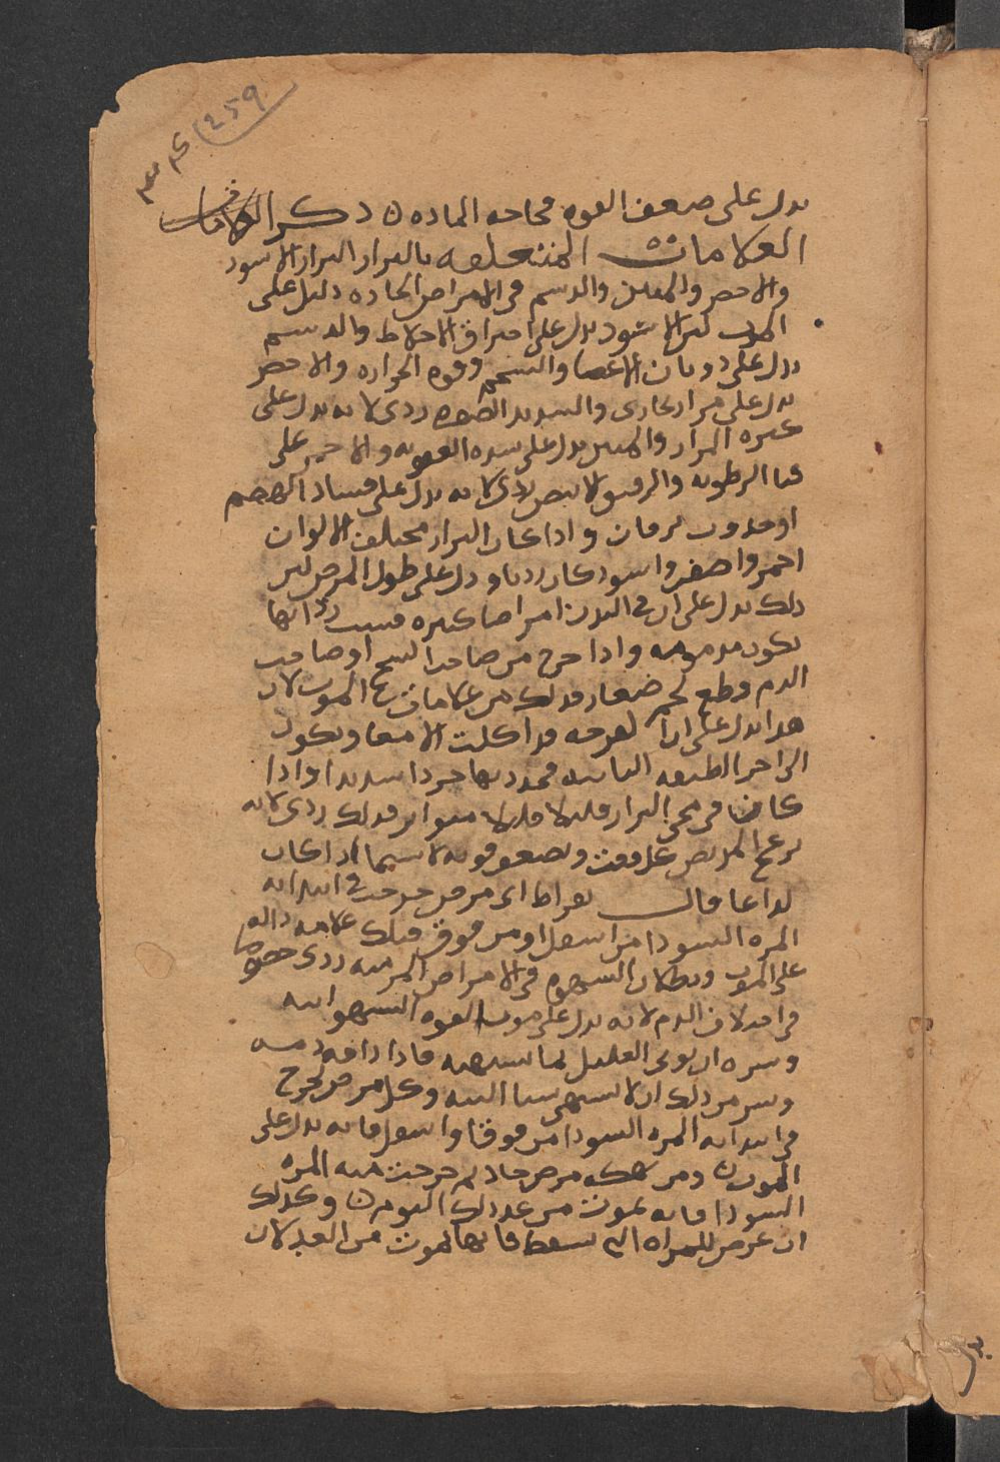 ٤٥٩
يدل على ضعف القوه فجاجه الماده ه ذكر
العلامات المتعلقه بالبراز البراز الاسود
والاخضر والمنتن والدسم في الامراض الحاده دليل على
الموت لان الاسود يدل على احتراق الاخلاط والدسم
يدل على ذوبان الاعضا والشحم وقوه الحراره والاخضر
يدل على مرار زنجارى والشديد الصفره ردى لانه يدل على
كثره المرار والمنتن يدل على شده العفونه والاحمر على
فنا الرطوبه والرقيق الابيض ردى لانه يدل على فساد الهضم
او حدوث يرقان واذا كان البراز مختلف الالوان
احمر واصفر واسود كان رديا ودل على طول المرض لان
ذلك يدل على ان في البدن امراضا كثيره
تكون مذمومه واذا خرج من صاحب السحج او صاحب
الدم قطع لحم صغار فذلك من علامات الموت لان
هذا يدل على ان القرحه قد اكلت الامعا وتكون
الى اخر الطبقه الثانيه فتجردها جردا شديدا واذا
كان في مجى البراز قليلا قليلا متواتر فذلك ردى لانه
يزعج المريض كل وقت وتضعف قوته لا سيما اذا كان
لذاعا قال بقراط اى مرض خرجت في ابتدائه
المره السودا من اسفل او من فوق فتلك علامه داله
على الموت وبطلان الشهوه في الامراض المزمنه ردى خصوصا
في اختلاف الدم لانه يدل على موت القوه الشهوانيه
وشره ان يوتى العليل بما يشتهيه فاذا ذاقه ذمه
وشر من ذلك ان لا يشتهى شيا البته وكل مرض تخرج
في ابتدائه المره السودا من فوق او اسفل فانه يدل على
الموت ومن نهكه مرض حاد ثم خرجت منه المره
السودا فانه يموت من غد ذلك اليوم ه وكذلك
ان عرض للمراه التي تسقط فانها تموت من الغد لان